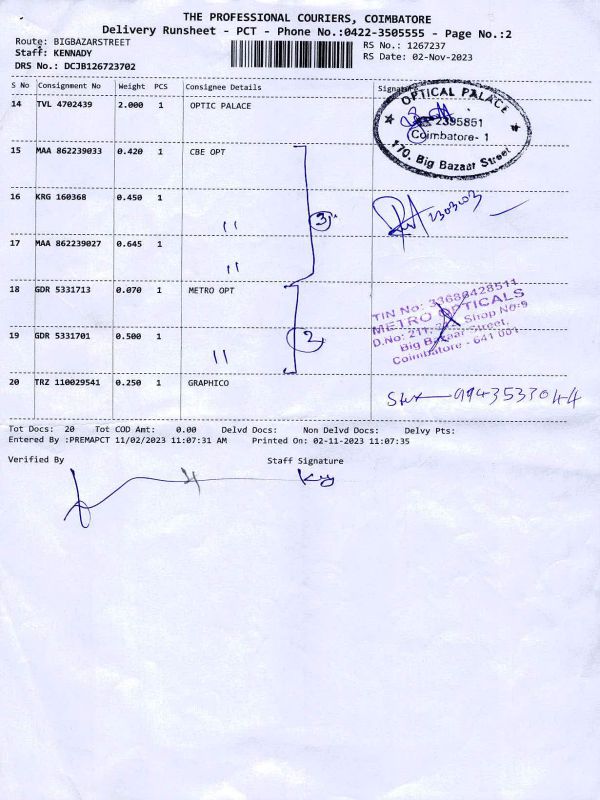 THE PROFESSIONAL COURIERS, COIMBATORE
Delivery Runsheet - PCT - Phone No.:0422-3505555 - Page No.:2
Route: BIGBAZARSTREET
Staff: KENNADY
DRS No.: DCJB126723702
RS No.: 1267237
RS Date: 02-Nov-2023
S No Consignment No Weight PCS Consignee Details Signature
14 TVL 4702439 2.000 1 OPTIC PALACE
OPTICAL PALACE
2395851
Coimbatore- 1
170. Big Bazaar Street
15 MAA 862239033 0.420 1 CBE OPT
16 KRG 160368 0.450 1 "
3
2303203
17 MAA 862239027 0.645 1 "
18 GDR 5331713 0.070 1 METRO OPT
TIN No: 33686428511
METRO OPTICALS
D.No: 211, Shop No:9
Big Bazaar Street,
Coimbatore - 641 001
19 GDR 5331701 0.500 1 "
2
20 TRZ 110029541 0.250 1 GRAPHICO
9943533044
Tot Docs: 20 Tot COD Amt: 0.00 Delvd Docs: Non Delvd Docs: Delvy Pts:
Entered By :PREMAPCT 11/02/2023 11:07:31 AM Printed On: 02-11-2023 11:07:35
Verified By Staff Signature